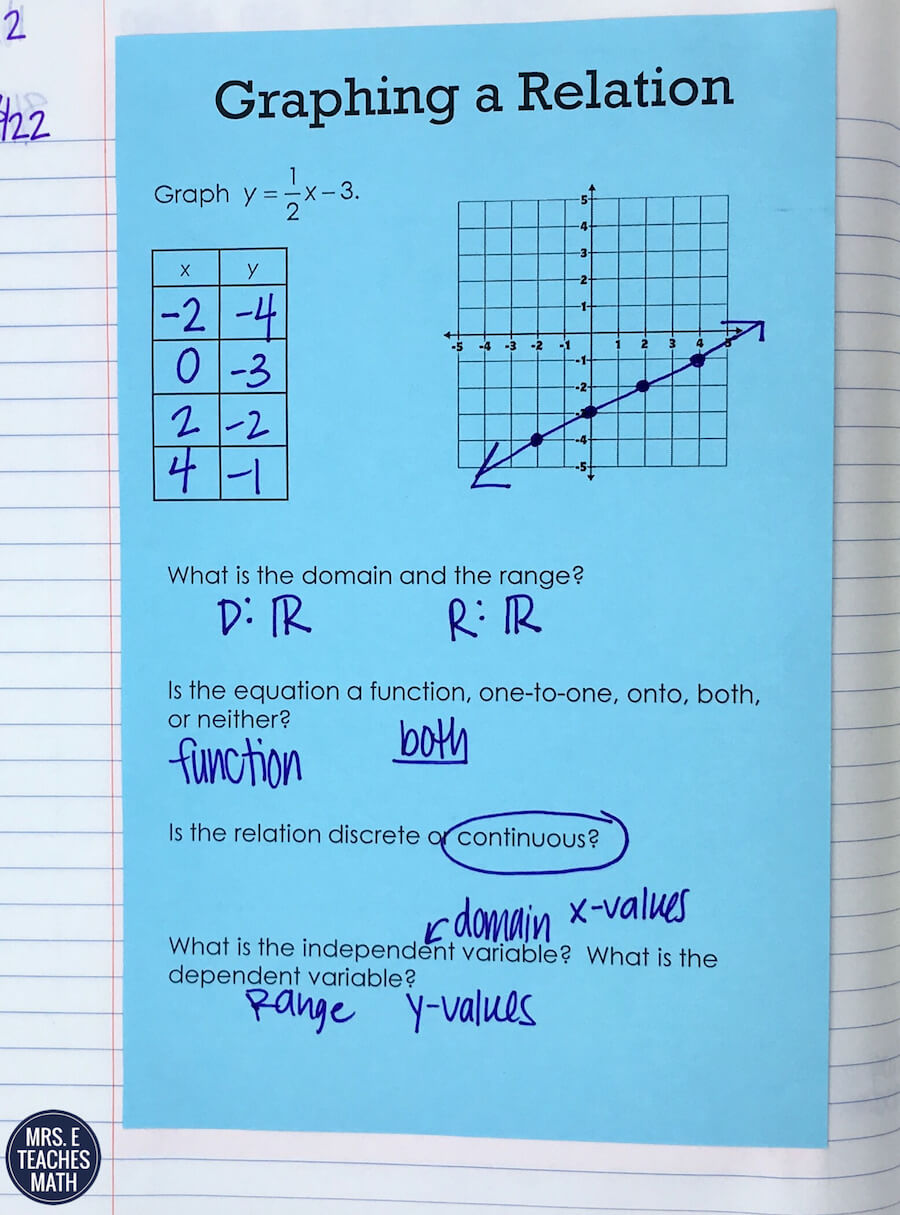 2
/22
Graphing a Relation
Graph y = 1/2 x – 3.
x y
-2 -4
0 -3
2 -2
4 -1
5
4
3
2
1
-5 -4 -3 -2 -1 1 2 3 4 5
-1
-2
-3
-4
-5
What is the domain and the range?
D: ℝ R: ℝ
Is the equation a function, one-to-one, onto, both,
or neither?
function both
Is the relation discrete or continuous?
domain x-values
What is the independent variable? What is the
dependent variable?
Range y-values
MRS. E
TEACHES
MATH